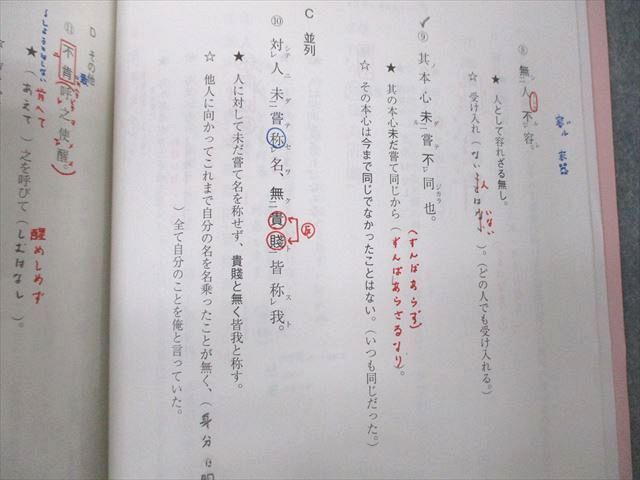 ⑧ 無人不容。
★ 人として容れざる無し。
☆ 受け入れ（ない人はいない）。（どの人でも受け入れる。）
⑨ 其本心未嘗不同也。
★ 其の本心未だ嘗て同じから（ずんばあらず）（ずんばあらざるなり）。
☆ その本心は今まで同じでなかったことはない。（いつも同じだった。）
C 並列
⑩ 対人未嘗称名、無貴賤皆称我。
★ 人に対して未だ嘗て名を称せず、貴賤と無く皆我と称す。
☆ 他人に向かってこれまで自分の名を名乗ったことが無く、（身分は
）全て自分のことを俺と言っていた。
D その他
⑪ 不肯呼之使醒。
★（あえて）之を呼びて（しむはなし）。
肯へて
醒めしめず